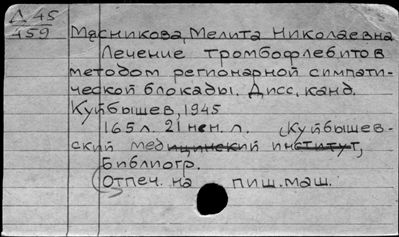 Д 45
459
Мясникова, Мелита Николаевна
Лечение тромбофлебитов
методом регионарной симпати-
ческой блокады. Дисс. канд.
Куйбышев, 1945
165 л. 21 нен. л. (Куйбышев-
ский медицинский институт,
Библиогр.
Отпеч. на пиш. маш.